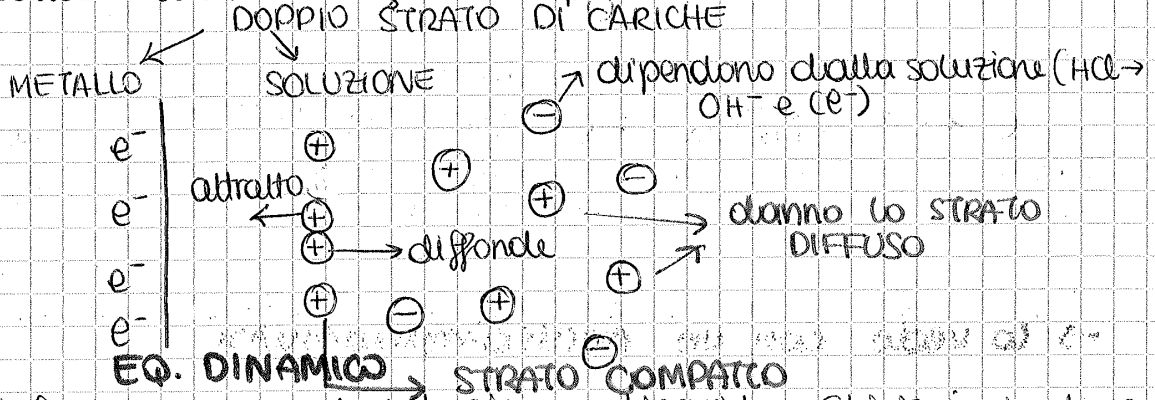 DOPPIO STRATO DI CARICHE
METALLO SOLUZIONE
dipendono dalla soluzione (HCl →
OH⁻ e Cl⁻)
e⁻ ⊕ ⊖
attratto ⊕ ⊖
e⁻ ⊕ ⊕
danno lo STRATO
DIFFUSO
⊕ diffonde
e⁻ ⊕ ⊕
e⁻ ⊖ ⊕ ⊖
EQ. DINAMICO
STRATO COMPATTO